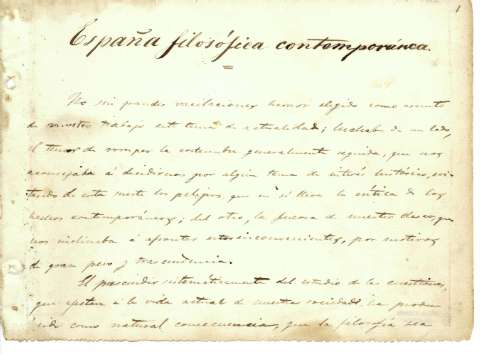 1
España filosófica contemporánea.
No sin grandes vacilaciones hemos elegido como asunto
de nuestro trabajo este tema de actualidad; luchaba de un lado,
el temor de romper la costumbre generalmente seguida, que nos
aconsejaba á decidirnos por algún tema de interés histórico, evi-
tando de esta suerte los peligros que en sí lleva la crítica de los
hechos contemporáneos; del otro, la fuerza de nuestro deseo, que
nos inclinaba á afrontar estos inconvenientes, por motivos
de gran peso y trascendencia.
El prescindir sistemáticamente del estudio de las cuestiones
que afectan á la vida actual de nuestra sociedad ha produ-
cido como natural consecuencia, que la filosofía sea